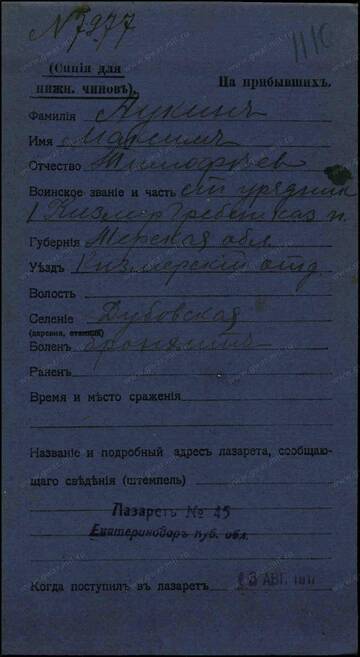 № 7977
1116
(Синія для
нижн. чиновъ).
На прибывшихъ.
Фамилія Лукинъ
Имя Максимъ
Отчество Тимофѣев
Воинское званіе и часть ст урядник
1 Кизляр Гребен каз п
Губернія Терская обл
Уѣздъ Кизлярскій отд
Волость
Селеніе Дубовская
(деревня, станица)
Боленъ бронхитъ
Раненъ
Время и мѣсто сраженія
Названіе и подробный адресъ лазарета, сообщаю-
щаго свѣдѣнія (штемпель)
Лазаретъ № 45
Екатеринодаръ Куб. обл.
Когда поступилъ въ лазаретъ 3 АВГ. 191